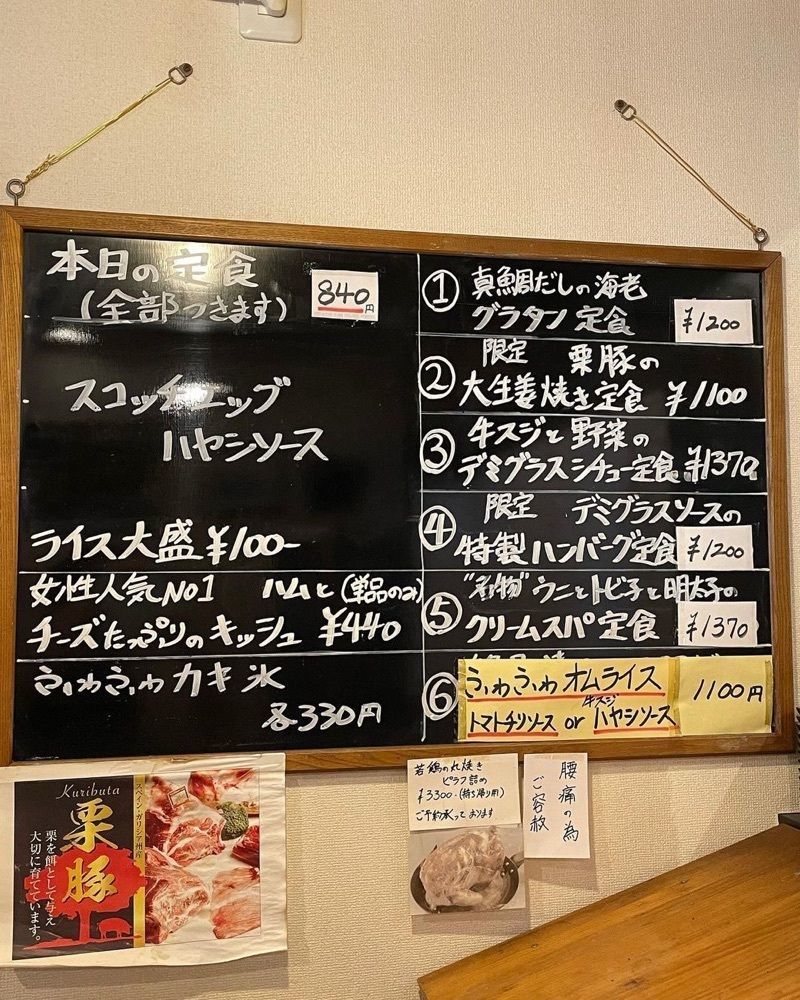 本日の定食
(全部つきます)
840円
スコッチエッグ
ハヤシソース
ライス大盛 ¥100-
女性人気No1 ハムと(単品のみ)
チーズたっぷりのキッシュ ¥440
ふわふわカキ氷
各330円
① 真鯛だしの海老
グラタン定食 ¥1200
② 限定 栗豚の
大生姜焼き定食 ¥1100
③ 牛スジと野菜の
デミグラスシチュー定食 ¥1370
④ 限定 デミグラスソースの
特製ハンバーグ定食 ¥1200
⑤ "名物"ウニとトビ子と明太子の
クリームスパ定食 ¥1370
⑥ ふわふわオムライス 1100円
牛スジ
トマトチリソース or ハヤシソース
Kuributa
栗豚
スペイン・ガリシア州産
栗を餌として与え
大切に育てています。
若鶏の丸焼き
ピラフ詰め
¥3300-(持ち帰り用)
ご予約承っております
腰痛の為
ご容赦